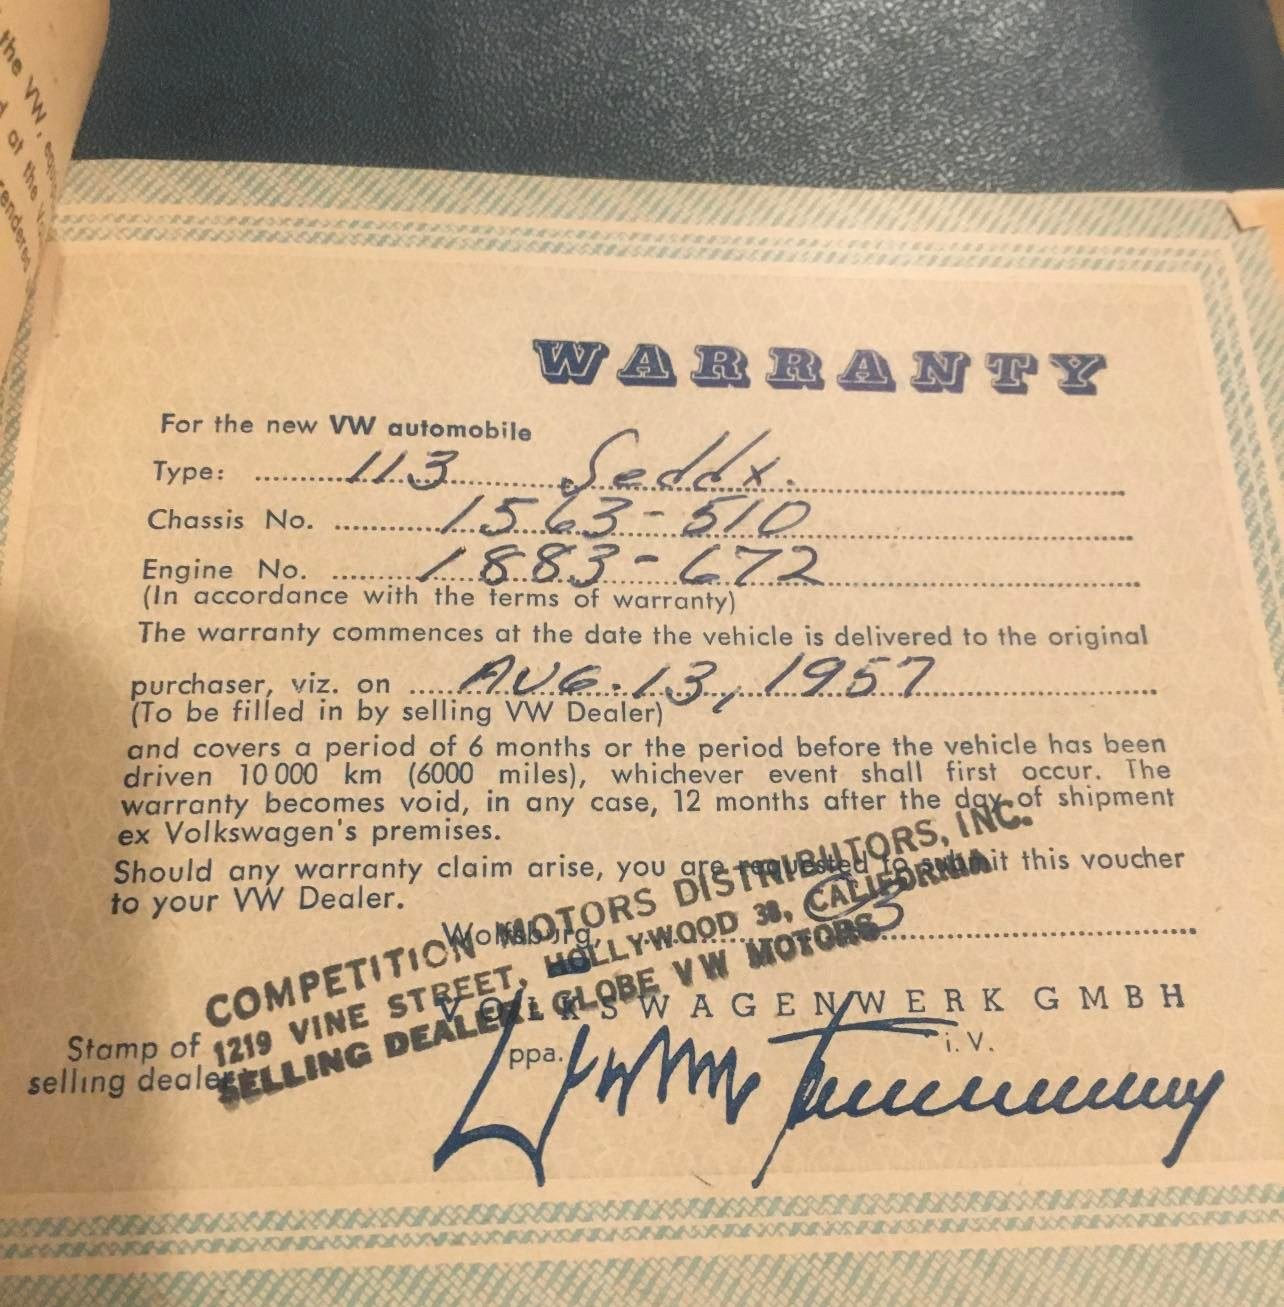 the VW,
at the
rendered
WARRANTY
For the new VW automobile
Type: 113 Seddx.
Chassis No. 1563-510
Engine No. 1883-672
(In accordance with the terms of warranty)
The warranty commences at the date the vehicle is delivered to the original
purchaser, viz. on AUG. 13, 1957
(To be filled in by selling VW Dealer)
and covers a period of 6 months or the period before the vehicle has been
driven 10 000 km (6000 miles), whichever event shall first occur. The
warranty becomes void, in any case, 12 months after the day of shipment
ex Volkswagen's premises.
Should any warranty claim arise, you are requested to submit this voucher
to your VW Dealer.
Wolfsburg,
COMPETITION MOTORS DISTRIBUTORS, INC.
1219 VINE STREET, HOLLYWOOD 38, CALIFORNIA
SELLING DEALER: GLOBE VW MOTORS
VOLKSWAGENWERK GMBH
Stamp of
selling dealer:
ppa. i. V.